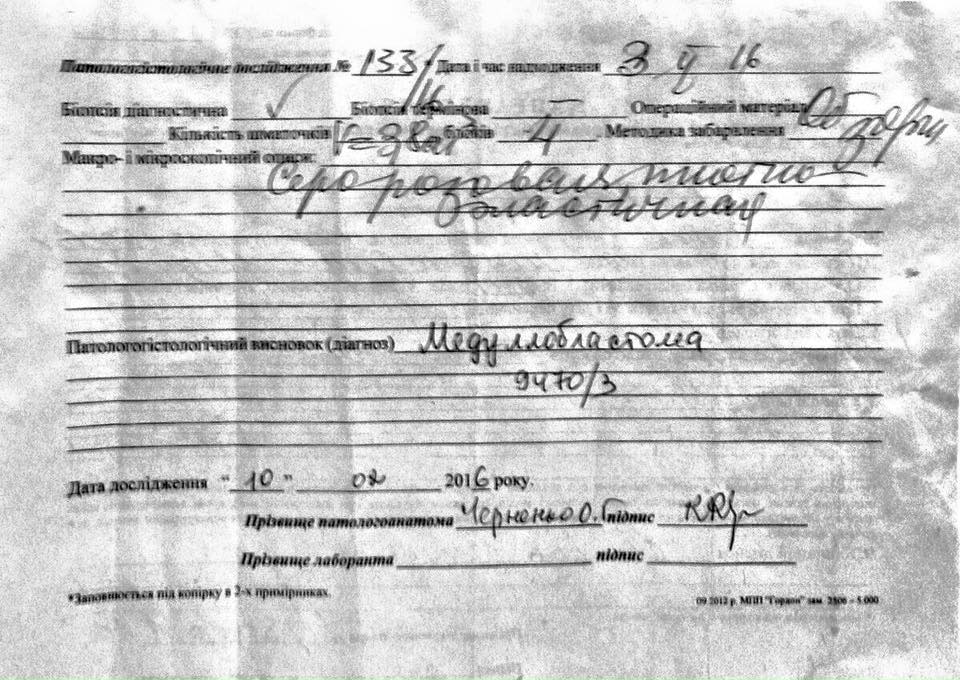 Патологогістологічне дослідження № 133/16 Дата і час надходження 3 II 16
Біопсія діагностична ✓ Біопсія термінова — Операційний матеріал
Кількість шматочків блоків 4 Методика забарвлення
Макро- і мікроскопічний опис:
Серо розовая, плотно
эластичная
Патологогістологічний висновок (діагноз) Медуллобластома
9470/3
Дата дослідження "10" 02 2016 року.
Прізвище патологоанатома Черненко О. підпис
Прізвище лаборанта підпис
*Заповнюється під копірку в 2-х примірниках.
09.2012 р. МПП "Гордон" зам. 2506 – 5.000